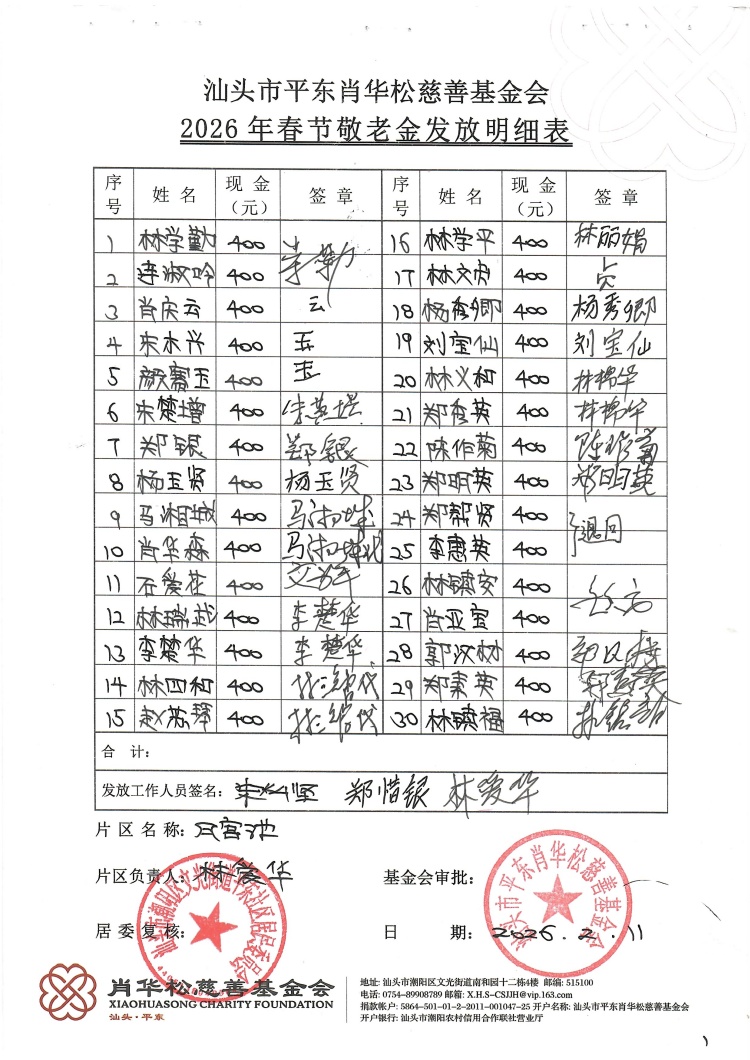 汕头市平东肖华松慈善基金会
2026 年春节敬老金发放明细表
序号 姓 名 现 金（元） 签 章 序号 姓 名 现 金（元） 签 章
1 林学勤 400 16 林学平 400 林丽娟
2 连淑吟 400 17 林文贞 400 贞
3 肖庆云 400 云 18 杨秀卿 400 杨秀卿
4 宋木兴 400 玉 19 刘宝仙 400 刘宝仙
5 颜赛玉 400 玉 20 林义和 400 林棉华
6 宋楚增 400 21 郑秀英 400 林棉华
7 郑银 400 郑银 22 陈作菊 400 陈作菊
8 杨玉贤 400 杨玉贤 23 郑明英 400 郑明英
9 马湘城 400 马湘城 24 郑帮贤 400 退回
10 肖华森 400 马湘城代 25 李惠英 400
11 石爱花 400 26 林镇安 400
12 林瑞武 400 李楚华 27 肖亚宝 400
13 李楚华 400 李楚华 28 郭汉林 400
14 林四和 400 29 郑素英 400 郑素英
15 赵惹琴 400 30 林镇福 400
合 计：
发放工作人员签名： 郑惜银 林爱华
片 区 名 称： 宫池
片区负责人： 林爱华 基金会审批：
居 委 复 核： 日 期： 2026.2.11
汕头市潮阳区文光街道平东社区居民委员会
汕头市平东肖华松慈善基金会
肖华松慈善基金会
XIAOHUASONG CHARITY FOUNDATION
汕头·平东
地址: 汕头市潮阳区文光街道南和园十二栋4楼 邮编: 515100
电话: 0754-89908789 邮箱: X.H.S-CSJJH@vip.163.com
捐款帐户: 5864-501-01-2-2011-001047-25 开户名称: 汕头市平东肖华松慈善基金会
开户银行: 汕头市潮阳农村信用合作联社营业厅
1